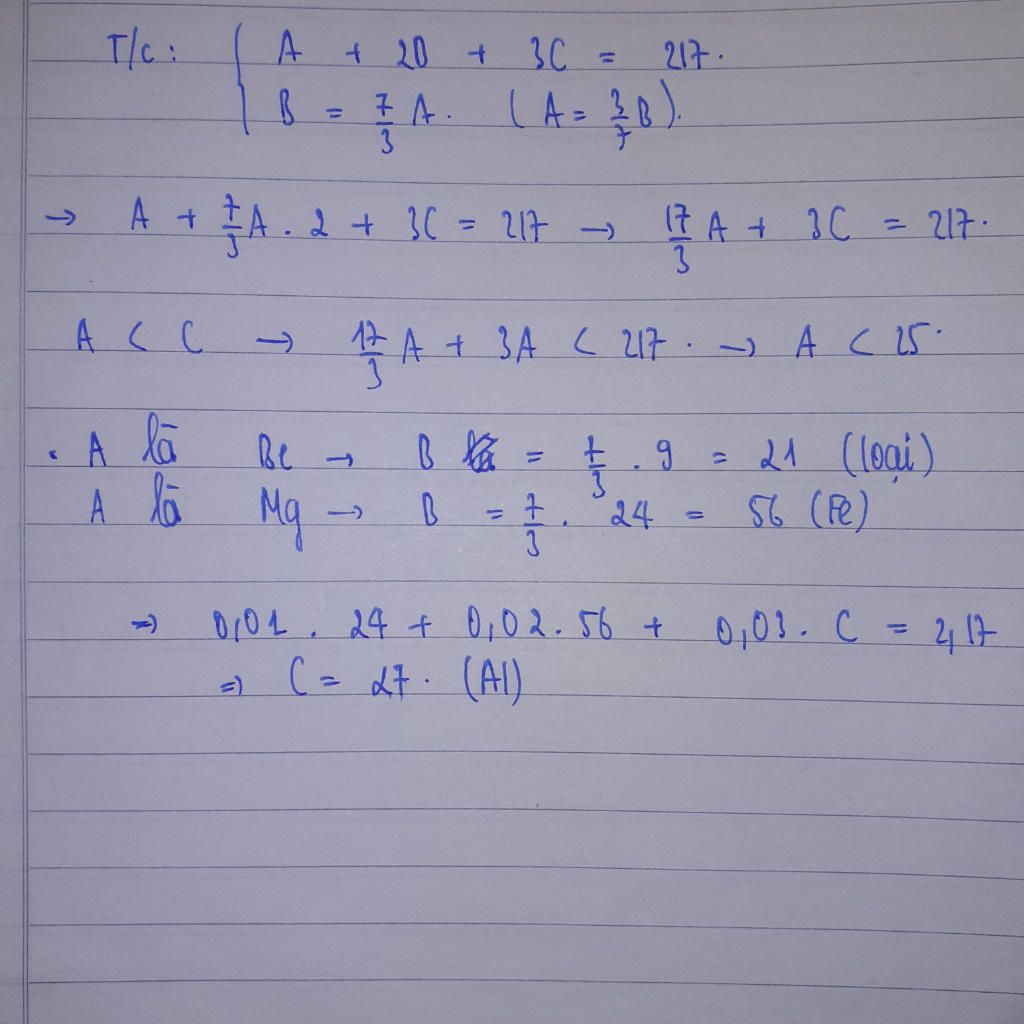 T/c: { A + 2B + 3C = 217.
B = 7/3 A. (A = 3/7 B).
→ A + 7/3 A . 2 + 3C = 217 → 17/3 A + 3C = 217.
A < C → 17/3 A + 3A < 217. → A < 25.
. A là Be → B = 7/3 . 9 = 21 (loại)
A là Mg → B = 7/3 . 24 = 56 (Fe)
⇒ 0,01 . 24 + 0,02 . 56 + 0,03 . C = 2,17
⇒ C = 27. (Al)